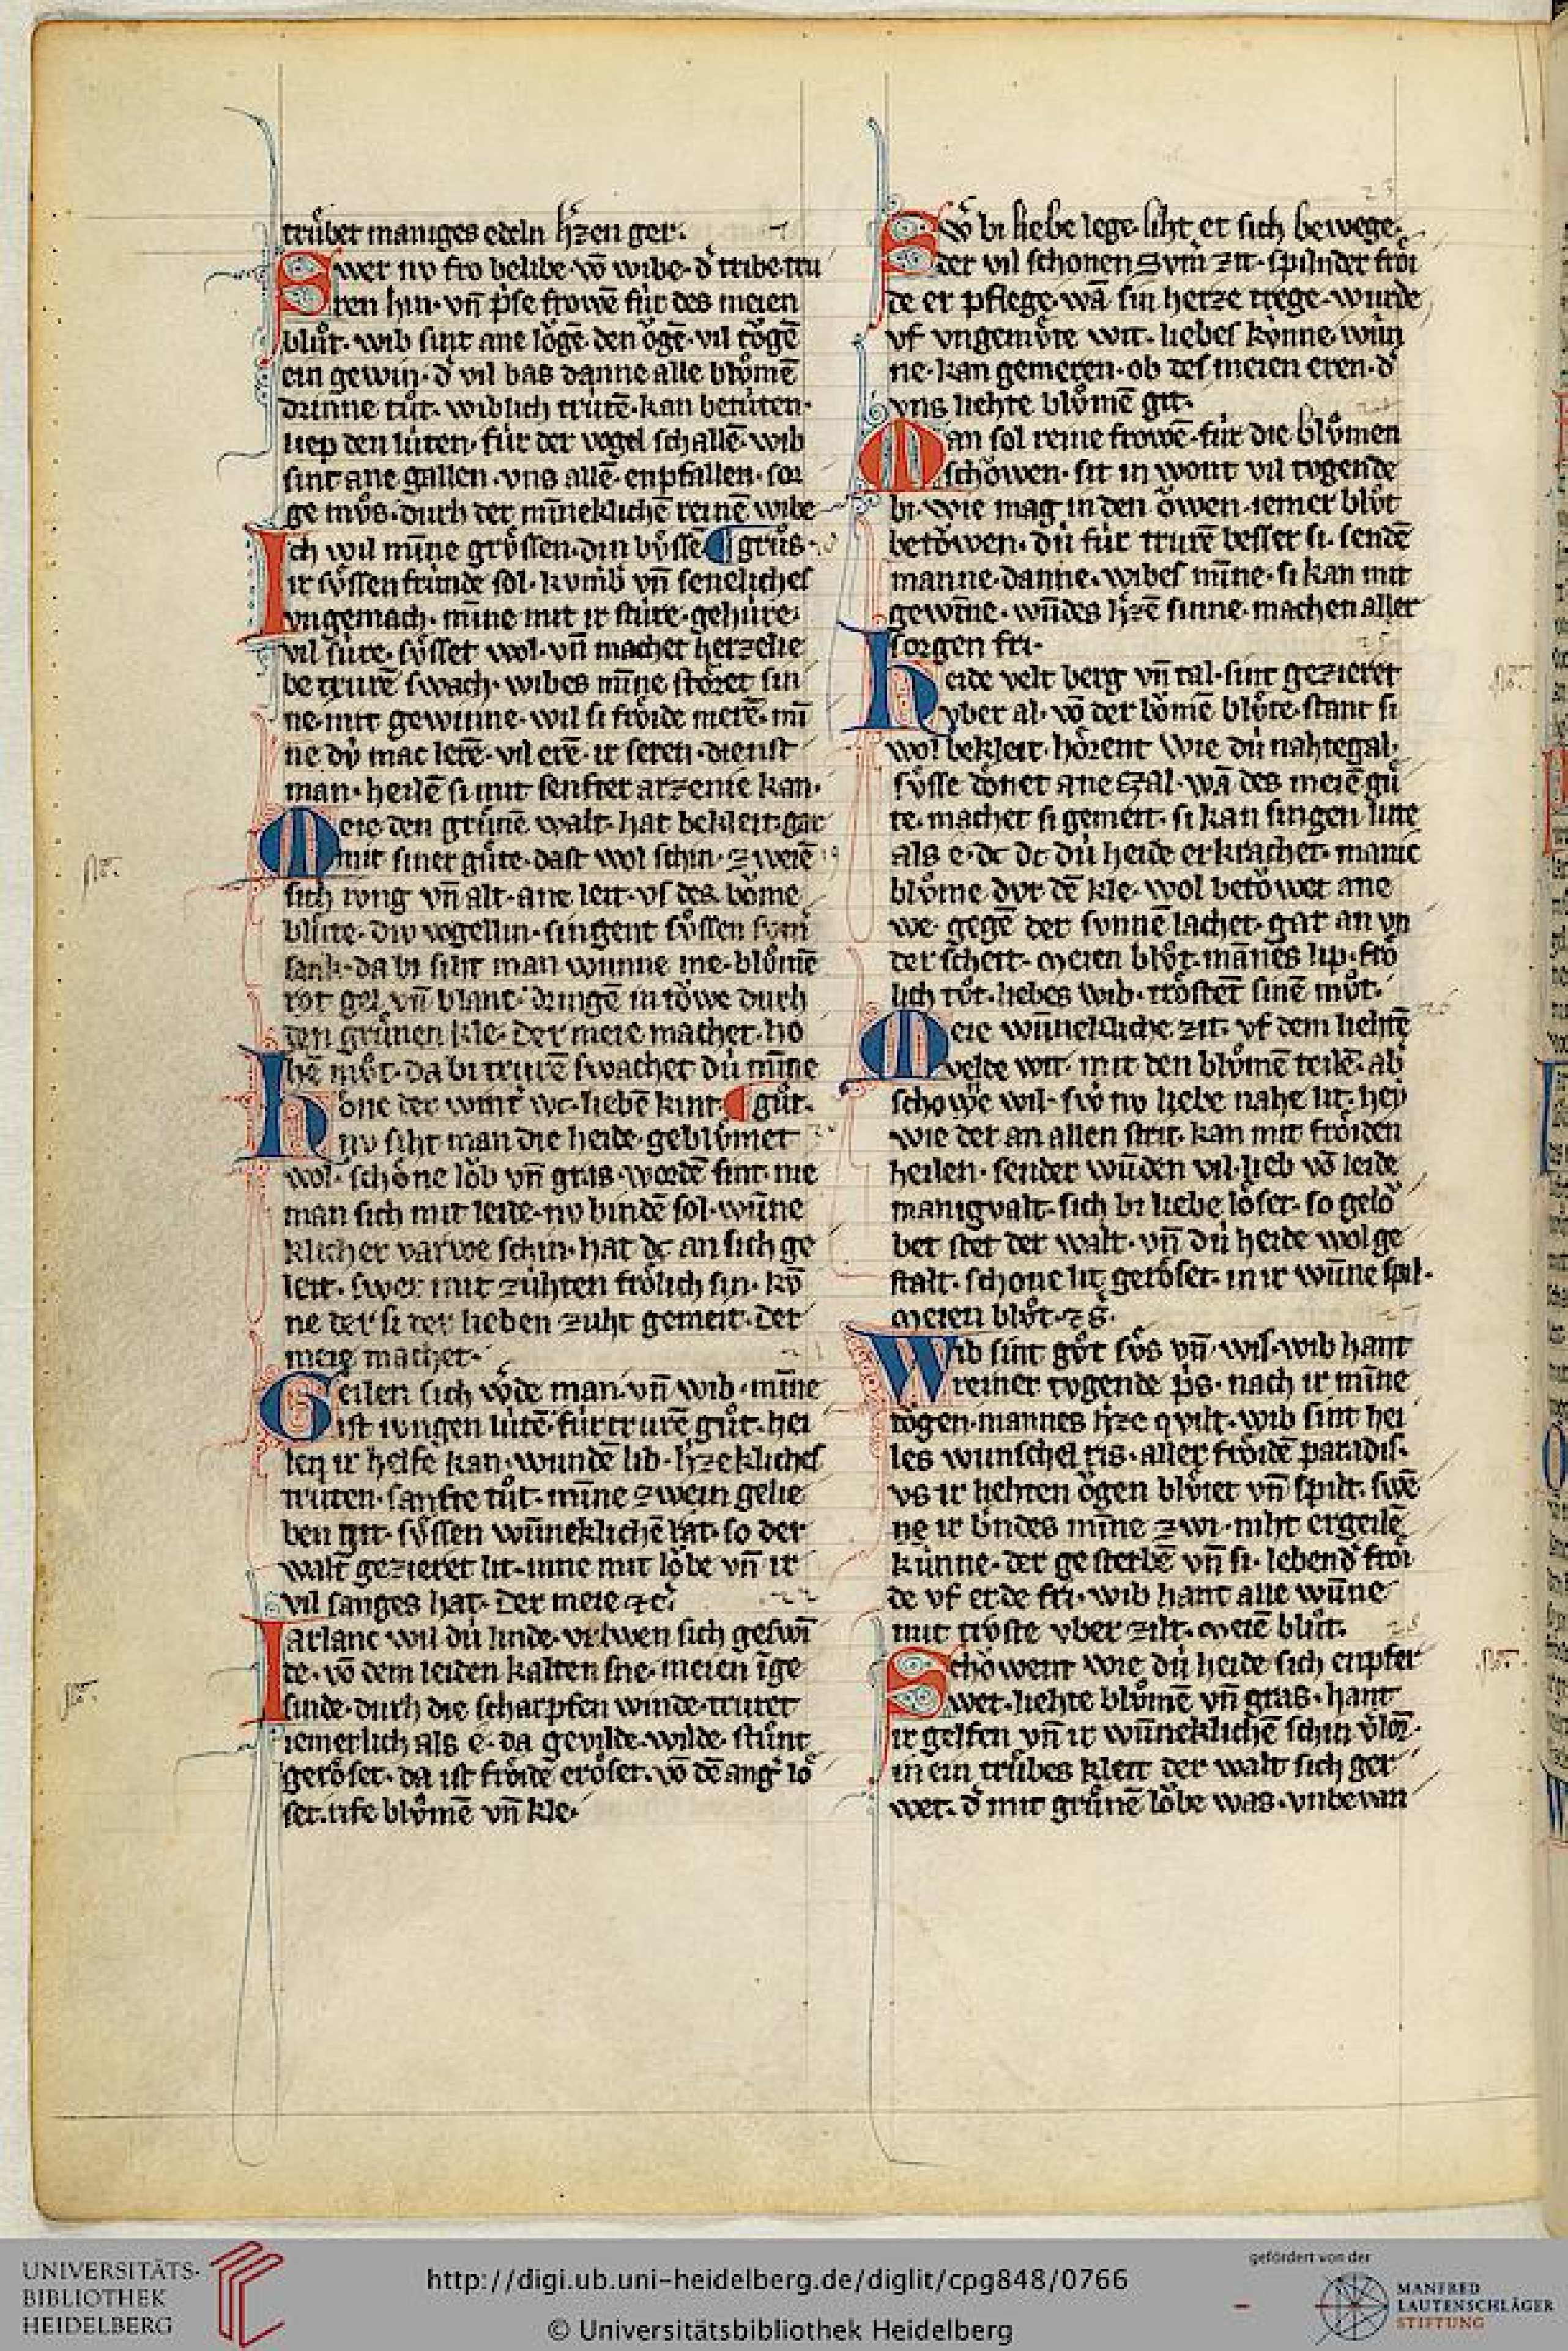 trůbet maniges edeln h̾zen ger.
Swer nv fro belibe. võ wibe. d̾ tribe. tru
ren hin. vñ p̾se frowẽ fúr des meien
blůt. wib sint ane lo̊gẽ. den o̊gẽ. vil to̊gẽ
ein gewin. d̾ vil bas danne alle blůmẽ
drinne tůt. wiblich trútẽ. kan betúten.
liep den lúten. fúr der vogel schallẽ. wib
sint ane gallen. vns allẽ. enpfallen. sor
ge můs. durch der miñeklichẽ reinẽ wibe
Ich wil miñe grůssen. din bůsse ¶ grůs.
ir sůssen frúnde sol. kvmb̾ vñ seneliches
vngemach. miñe mit ir stúre. gehúre.
vil súre. sůsset wol. vñ machet herzelie
be trurẽ swach. wibes miñe stőret sin
ne. mit gewinne. wil si frőide merẽ. mĩ
ne dv́ mac lerẽ. vil erẽ. ir seren. dienst
man. heilẽ si mit senfter arzenie kan.
Meie den grůnẽ walt. hat bekleit. gar
mit siner gůte. dast wol schin. zweiẽ
sich ivng vñ alt. ane leit. vf des bőme
blůte. div vogellin. singent sůssen svm̃
sank. da bi siht man wunne me. blůmẽ
rot gel vñ blanc. dringẽ in tőwe durch
den grůnen kle. Der meie machet. ho
hẽ můt. da bi trurẽ swachet dú miñe
hone der wint̾ wc. liebẽ kint. ¶ gůt.
nv siht man die heide. geblůmet
wol. schőne lőb vñ gras. wordẽ sint. nie
man sich mit leide. nv bindẽ sol. wũne
klicher varwe schin. hat dc an sich ge
leit. swer mit zúhten frőlich sin. kõ
ne der si der lieben zuht gemeit. Der
meie machet.
Geilen sich wőde man. vñ wib. miñe
ist iungen lútẽ. fúr trurẽ gůt. hei
len ir helfe kan. wundẽ lib. h̾zekliches
truten. sanfte tůt. miñe zwein gelie
ben git. sůssen wũneklichẽ rat. so der
walt gezieret lit. inne mit lőbe vñ ir
vil sanges hat. Der meie ⁊c̾
Iarlanc wil dú linde. vrlwen sich geswĩ
de. võ dem leiden kalten sne. meien ĩge
sinde. durch die scharpfen winde. truret
iemerlich als e. da gevilde. wilde. stůnt
gerőset. da ist frőidẽ erőset. võ dẽ ang̾ lő
set. rife blůmẽ vñ kle.
Swȯ bi liebe lege. liht er sich bewege.
der vil schonen Svm̃ zit. spilnder frői
de er pflege. wã sin herze trege. wurde
vf vngemůte wit. liebes kőnne. wũn
ne. kan gemeren. ob des meien eren. d̾
vns liehte blůmẽ git.
Man sol reine frowẽ. fúr die blůmen
schőwen. sit in wont vil tvgende
bi. wie mag in den őwen. iemer blůt
betőwen. dú fúr trurẽ besser si. sendẽ
manne. danne. wibes miñe. si kan mit
gewĩne. wũdes h̾zẽ sinne. machen aller
sorgen fri.
heide velt berg vñ tal. sint gezieret
vber al. võ der bőmẽ blůte. stant si
wol bekleit. hőrent wie dú nahtegal.
sůsse dőnet ane zal. wã des meiẽ gů
te. machet si gemeit. si kan singen lute
als e. dc dc dú heide erkrachet. manic
blůme. dvr dẽ kle. wol betőwet ane
we. gegẽ der svnnẽ lachet. gar an vn
der scheit. Meien blůt. mãnes lip. frő
lich tůt. liebes wib. trőstet̾ sinẽ můt.
Meie wũnekliche zit. vf dem liehtẽ
velde wit. mit den blůmẽ teilẽ. ab̾
schowẽ wil. swȯ nv liebe nahe lit. hey
wie der an allen strit. kan mit frőiden
heilen. sender wũden vil. lieb võ leide
manigvalt. sich bi liebe lőset. so gelő
bet stet der walt. vñ dú heide wol ge
stalt. schone lit gerőset. in ir wũne spil.
Meien blůt. ⁊ c̾.
Wib sint gůt sůs vñ. wis. wib hant
reiner tvgende p̾s. nach ir miñe
tőgen. mannes h̾ze qvilt. wib sint hei
les wunschel ris. aller frőidẽ paradis.
vs ir liehten őgen blůiet vñ spilt. swẽ
ne ir bindes miñe zwi. niht ergeilẽ
kúnne. der gesterbẽ vñ si. lebend̾ frői
de vf erde fri. wib hant alle wũne
mit trőste vber zilt. Meiẽ blůt.
Schőwent wie dú heide sich enpfer
wet. liehte blůmẽ vñ gras. hant
ir gelfen vñ ir wũneklichẽ schin v̾lorn.
in ein trůbes kleit der walt sich ger
wet. d̾ mit grůnẽ lőbe was. vnbevan
UNIVERSITÄTS-
BIBLIOTHEK
HEIDELBERG
http://digi.ub.uni-heidelberg.de/diglit/cpg848/0766
© Universitätsbibliothek Heidelberg
gefördert von der
MANFRED
LAUTENSCHLÄGER
STIFTUNG